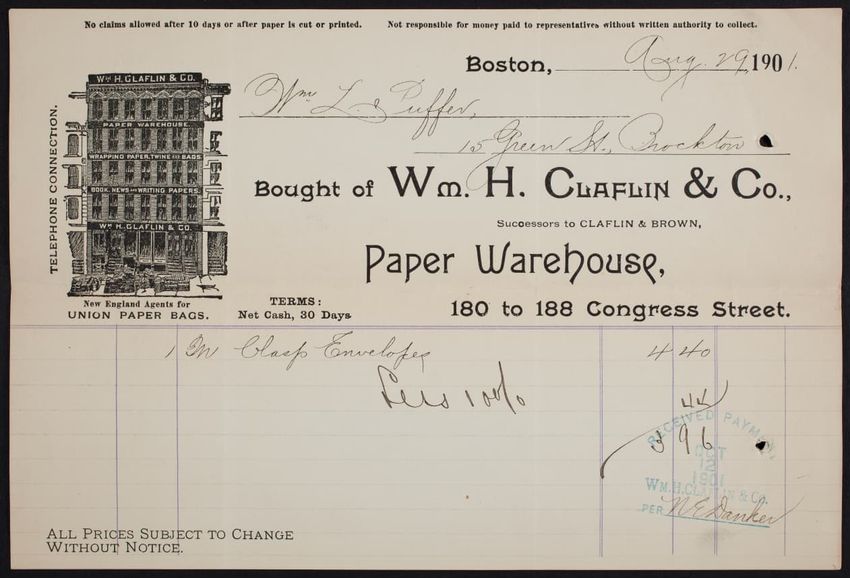 No claims allowed after 10 days or after paper is cut or printed. Not responsible for money paid to representatives without written authority to collect.
Boston, Aug. 29, 1901.
Wm L. Puffer,
15 Green St., Brockton
TELEPHONE CONNECTION.
WM H. CLAFLIN & CO.
PAPER WAREHOUSE.
WRAPPING PAPER, TWINE AND BAGS.
BOOK, NEWS AND WRITING PAPERS.
WM H. CLAFLIN & CO.
New England Agents for
UNION PAPER BAGS.
Bought of WM. H. CLAFLIN & CO.,
Successors to CLAFLIN & BROWN,
Paper Warehouse,
TERMS:
Net Cash, 30 Days.
180 to 188 Congress Street.
1 M Clasp Envelopes 4 40
Less 10% 44
3 96
RECEIVED PAYMENT,
OCT
12
1901
WM. H. CLAFLIN & CO.
PER N E Danker
ALL PRICES SUBJECT TO CHANGE
WITHOUT NOTICE.